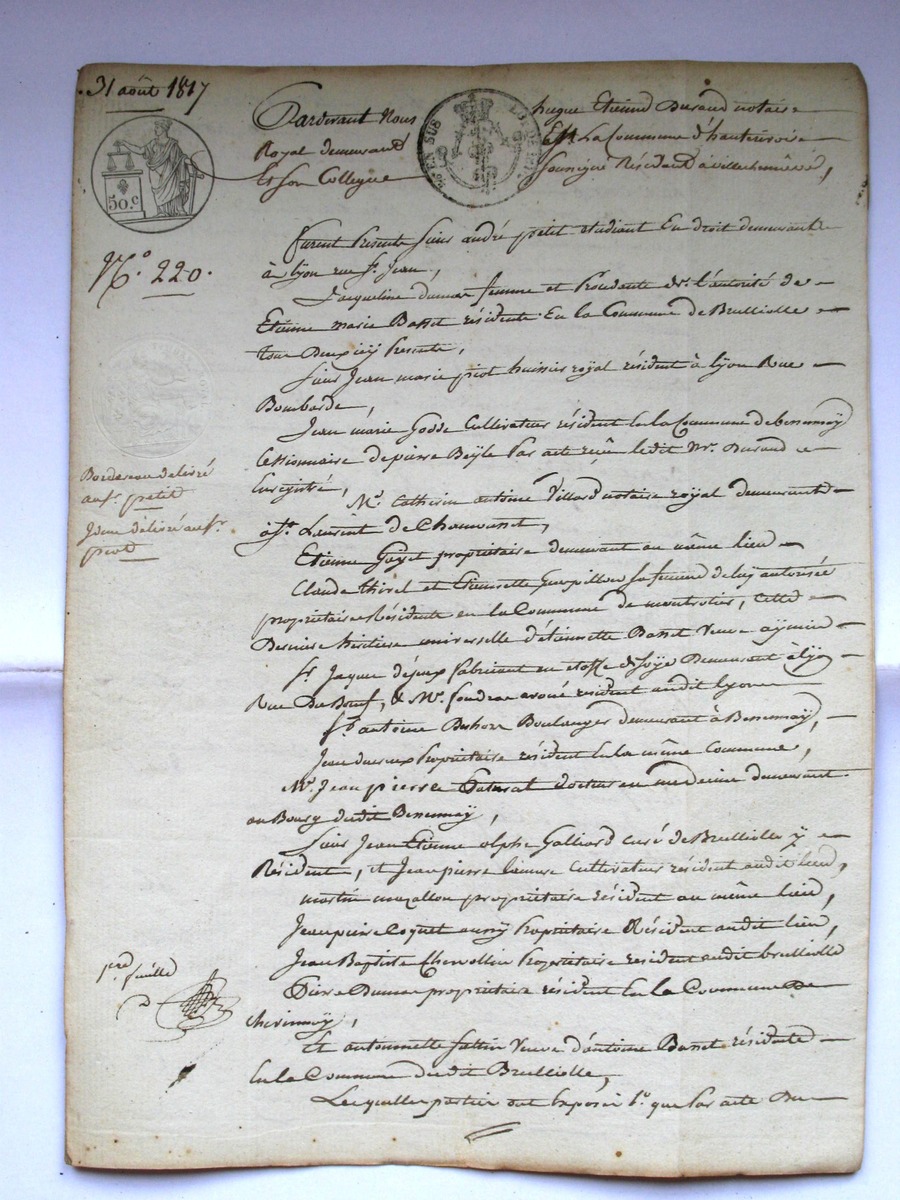 31 août 1817
Pardevant Nous hugue Etienne Durand notaire
Royal demeurant En La Commune d'hauterivoire
Et son Collegue Soussigné Résidant à villechenève,
EN SUS
50.c
N.o 220.
furent Présents sieur andré petit étudiant En droit demeurant
à lyon rue St. Jean,
Jacqueline dumas femme et Procédante de l'autorité de
Etienne marie Basset résidents En la Commune de Brulliolle
tous Deux icy Présents,
Sieur Jean marie piot huissier royal résident à lyon Rue
Bombarde,
Jean marie Godde Cultivateur résident En la Commune de bessenay
Cessionnaire de pierre Beyle Par acte reçu ledit Mr. Durand
Enregistré,
Mr. Catherin antoine Villard notaire royal demeurant
à St. Laurent de Chamousset,
Etienne Guyot propriétaire demeurant au même lieu
Claude thivel et Etiennette Guerpillon sa femme de luy autorisée
propriétaires Résidents en la Commune de montrotier, cette
Dernière héritière universelle d'étiennette Basset Veuve
Sr. Jaque fabricant en étoffe de soye Demeurant à lyon
Rue Du Bœuf, & Mr. avoué résident audit lyon
Sr. antoine Boulanger demeurant à Bessenay,
Jean Propriétaire résident En la même Commune,
Mr. Jean pierre docteur en medecine demeurant
au Bourg dudit Bessenay,
Sieur Jean Etienne Galliard curé de Brulliolle y
Résident, et Jean pierre cultivateur résident audit lieu,
propriétaire résident au même lieu,
Jean pierre Coquet aussy Propriétaire Résident audit lieu,
Jean Baptiste Propriétaire résident audit brulliolle
Pierre Dumas propriétaire résident En la Commune De
chevinnay,
Et antoinette Veuve d'antoine Basset résidente
En la Commune dudit Brulliolle,
Lesquelles parties ont Exposé 1.o que Par acte Du
Bordereau délivré
au Sr. petit
Idem délivré au Sr.
piot
feuille